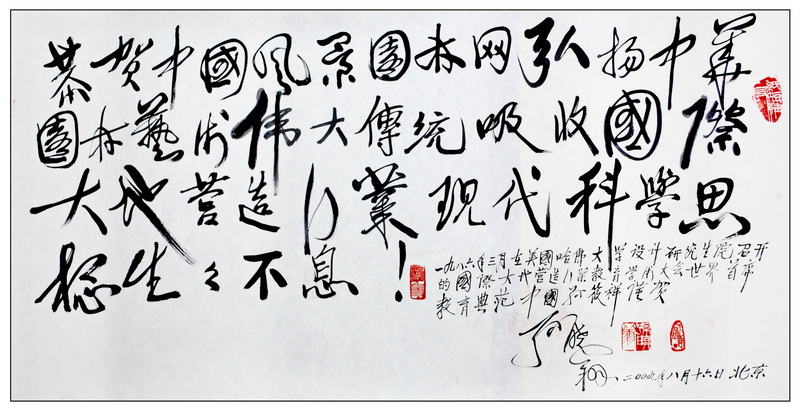 恭贺中國风景園林网弘扬中華
園林藝術伟大傳统吸收國際
大地营造行業现代科學思
想生々不息！
一九八六年三月在美國哈佛大学设计研究生院召开
的國際大地营造行業教育学術大会世界首席
教育典范中國孙筱祥谨贺
二00九年八月十六日 北京